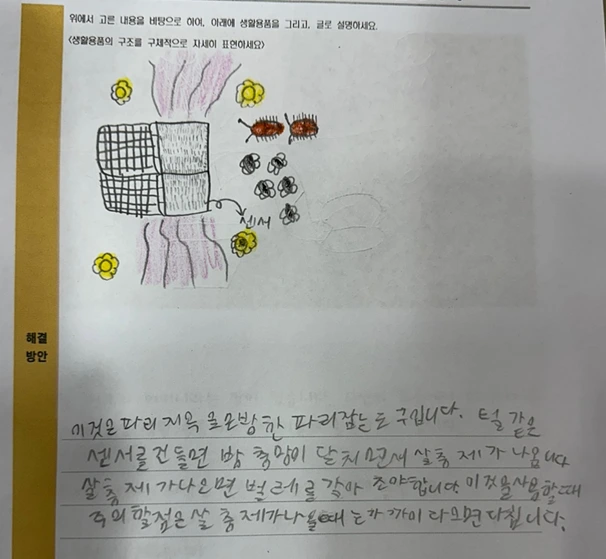 위에서 고른 내용을 바탕으로 하여, 아래에 생활용품을 그리고, 글로 설명하세요.
<생활용품의 구조를 구체적으로 자세히 표현하세요>
센서
해결
방안
이것은 파리지옥을 모방한 파리잡는 도구입니다. 털 같은
센서를 건들면 방충망이 닫치면서 살충제가 나옵니다
살충제가 나오면 벌레를 잡아 조아합니다. 이것을 사용할때
주의할점은 살충제가 나올때는 가까이 다으면 다칩니다.